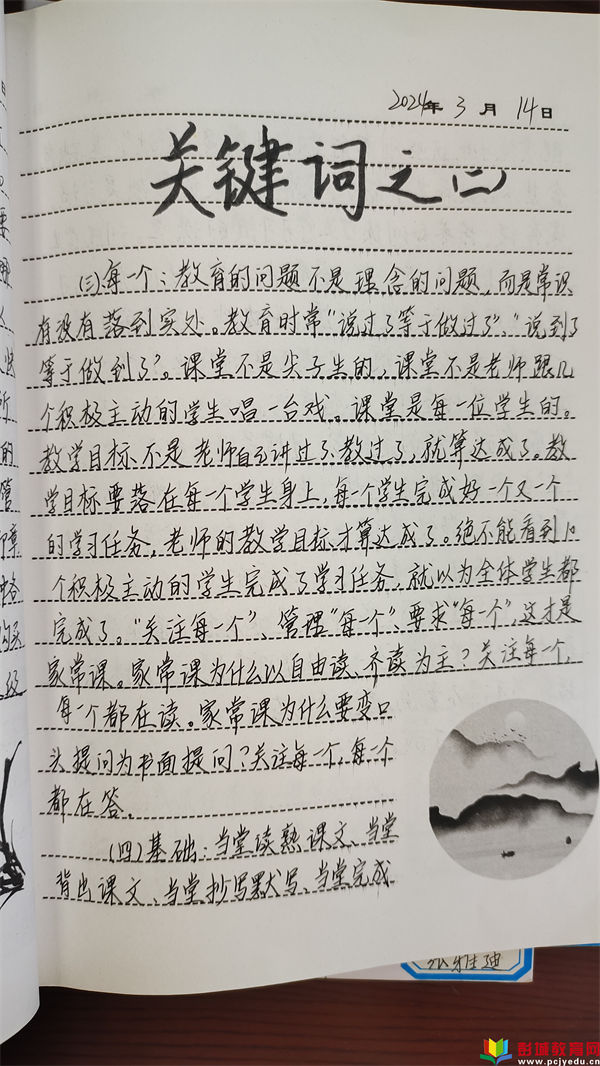 2024年3月14日
关键词之(二)
(三)每一个：教育的问题不是理念的问题，而是常识
有没有落到实处。教育时常“说过了等于做过了”、“说到了
等于做到了”。课堂不是尖子生的，课堂不是老师跟几
个积极主动的学生唱一台戏。课堂是每一位学生的。
教学目标不是老师自己讲过了、教过了，就算达成了。教
学目标要落在每一个学生身上，每一个学生完成好一个又一个
的学习任务，老师的教学目标才算达成了。绝不能看到10
个积极主动的学生完成了学习任务，就以为全体学生都
完成了。“关注每一个”、管理“每一个”、要求“每一个”，这才是
家常课。家常课为什么以自由读、齐读为主？关注每一个，
每一个都在读。家常课为什么要变口
头提问为书面提问？关注每一个，每一个
都在答。
(四)基础：当堂读熟课文、当堂
背出课文、当堂抄写默写、当堂完成
雅迪
彭城教育网
www.pcjyedu.cn